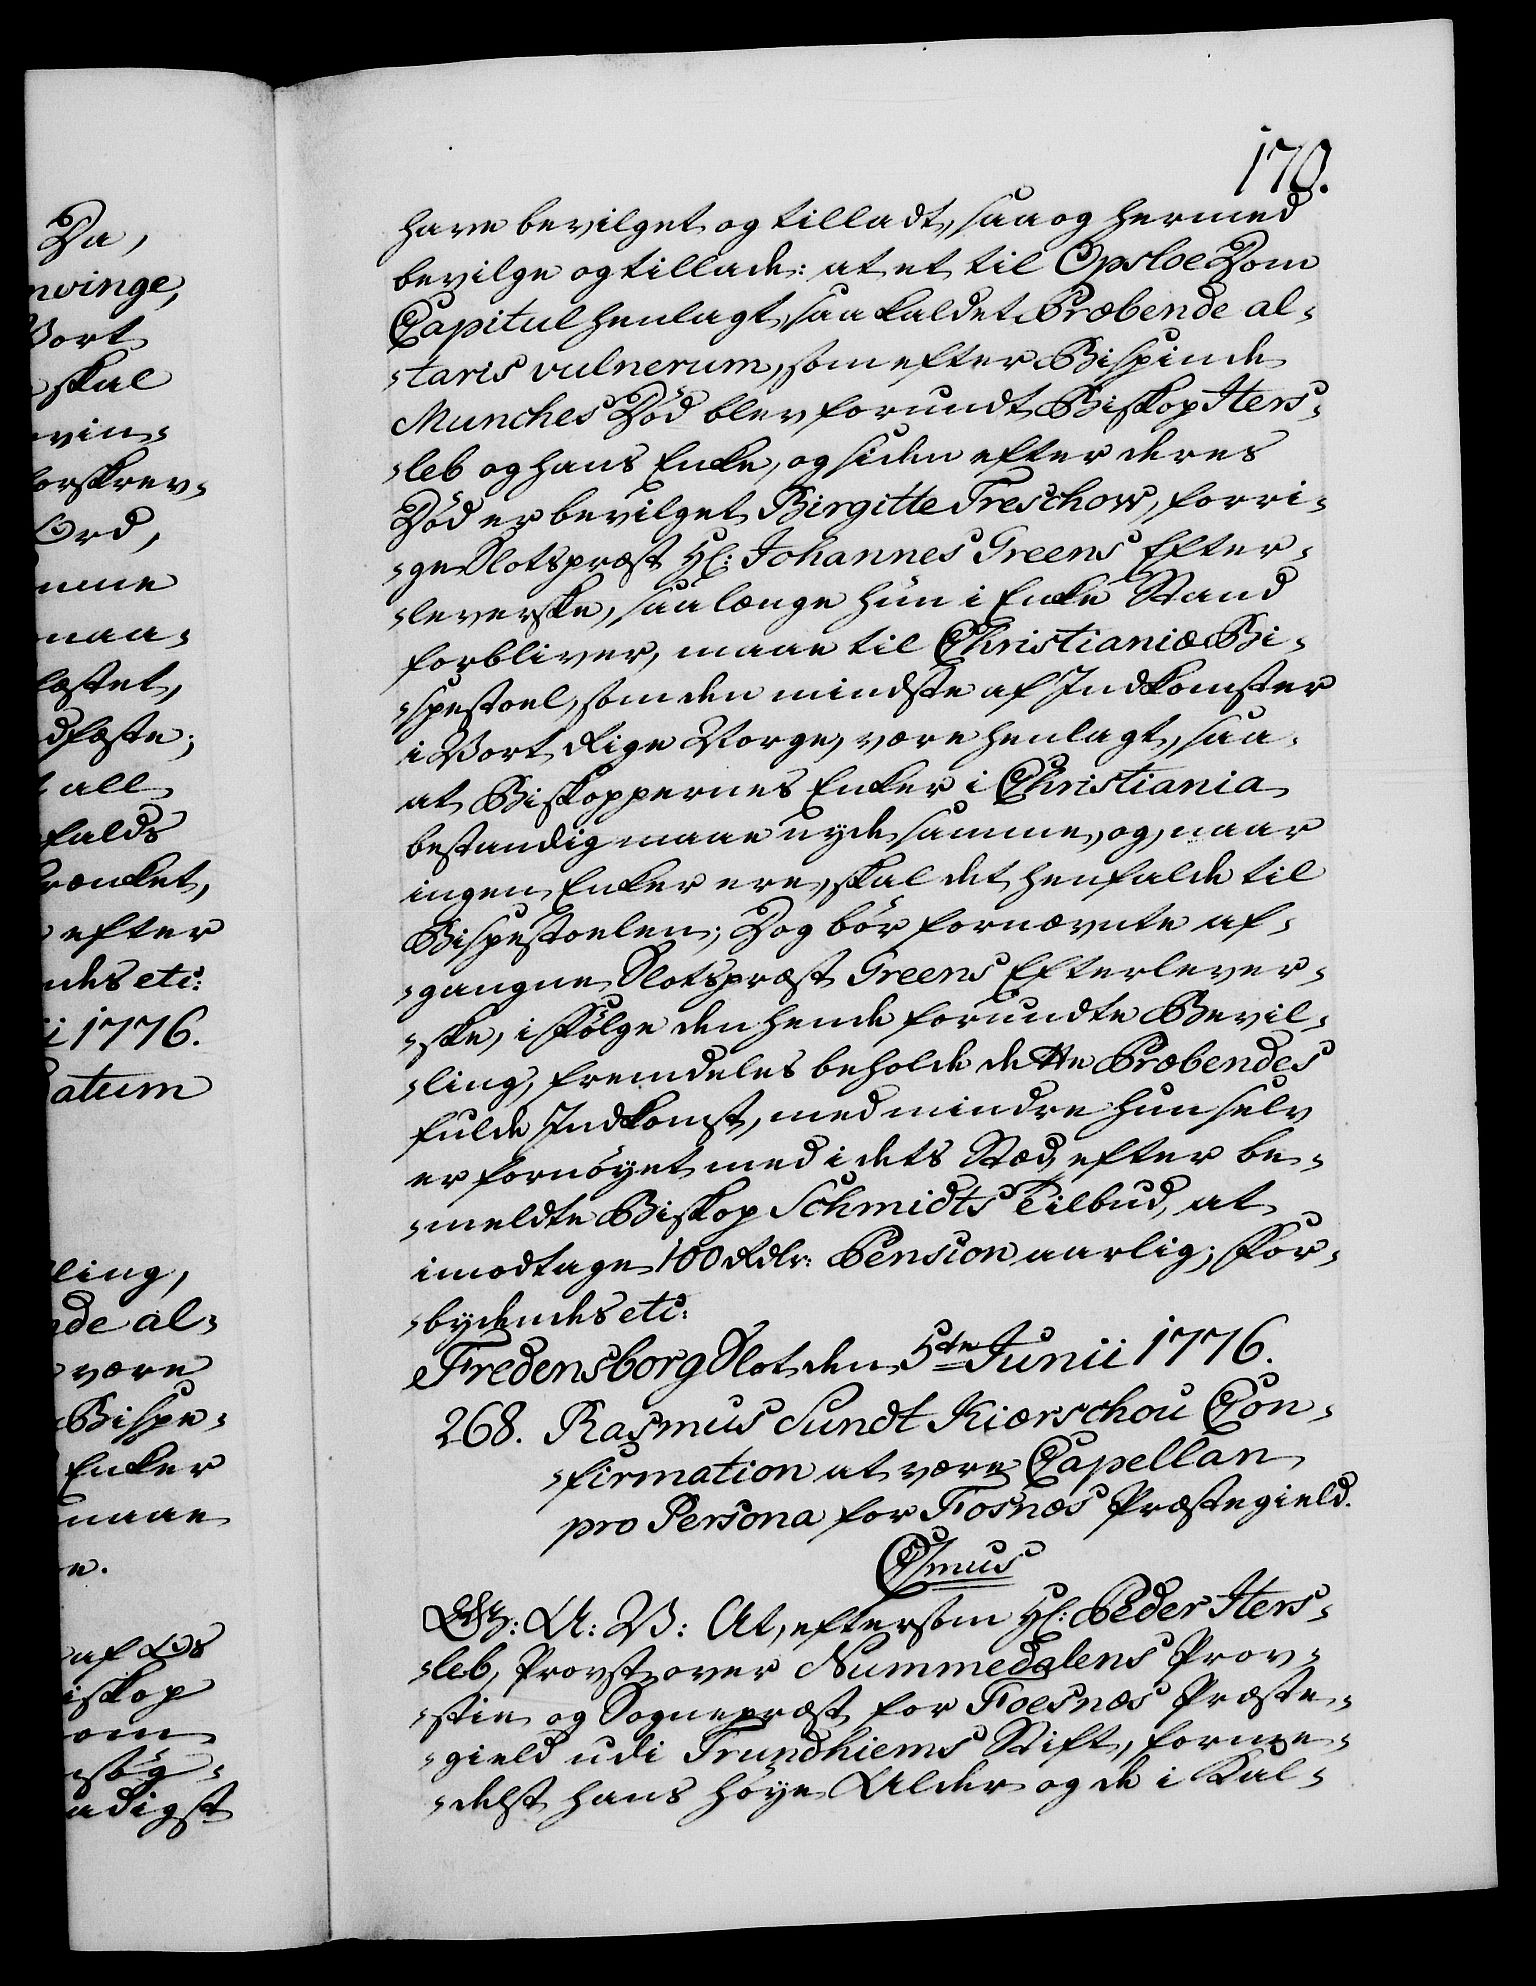 Da,
nvinge,
Vort
skal
vin-
orskrev-
Ord,
mme
maa-
æstet,
dfæste;
all
falds
rænket,
efter
ndes etc:
i 1776.
atum
ling,
de al-
være
Bispe-
Enker
maae
e.
af Os
iskop
om
nsög-
adigst
170.
have bevilget og tilladt, saa og hermed
bevilge og tillade: at et til Opsloe Dom
Capitul henlagt, saa kaldet Præbende al-
-taris vulnerum, som efter Bispinde
Munches Död blev forundt Biskop Hers-
-leb og hans Enke, og siden efter deres
Död er bevilget Birgitte Treschow, forri-
-ge Slotspræst Hr: Johannes Greens Efter-
-leverske, saa længe hun i Enke Stand
forbliver, maae til Christianiæ Bi-
-spestoel, som den mindste af Indkomster
i Vort Rige Norge, være henlagt, saa-
at Biskoppernes Enker i Christiania
bestandig maae nyde samme, og, naar
ingen Enker ere, skal det henfalde til
Bispestoelen; Dog bör fornævnte af-
-gangne Slotspræst Greens Efterlever-
-ske, i Fölge den hende forundte Bevil-
-ling, fremdeles beholde dette Præbendes
fulde Indkomst, med mindre hun selv
er fornöyet med i dets Stæd, efter be-
-meldte Biskop Schmidts Tilbud, at
imodtage 100 Rdlr: Pension aarlig; For-
-bydendes etc:
Fredensborg Slot den 5te Junii 1776.
268. Rasmus Sundt Kiærschou Con-
-firmation at være Capellan
pro Persona for Fosnæs Præstegield.
C7mus
G: A: V: At, eftersom Hr: Peder Hers-
-leb, Provst over Nummedalens Prov-
-stie og Sognepræst for Foesnæs Præste-
-gield udi Trundhiems Stift, forme-
-delst hans höye Alder og de i Kal-